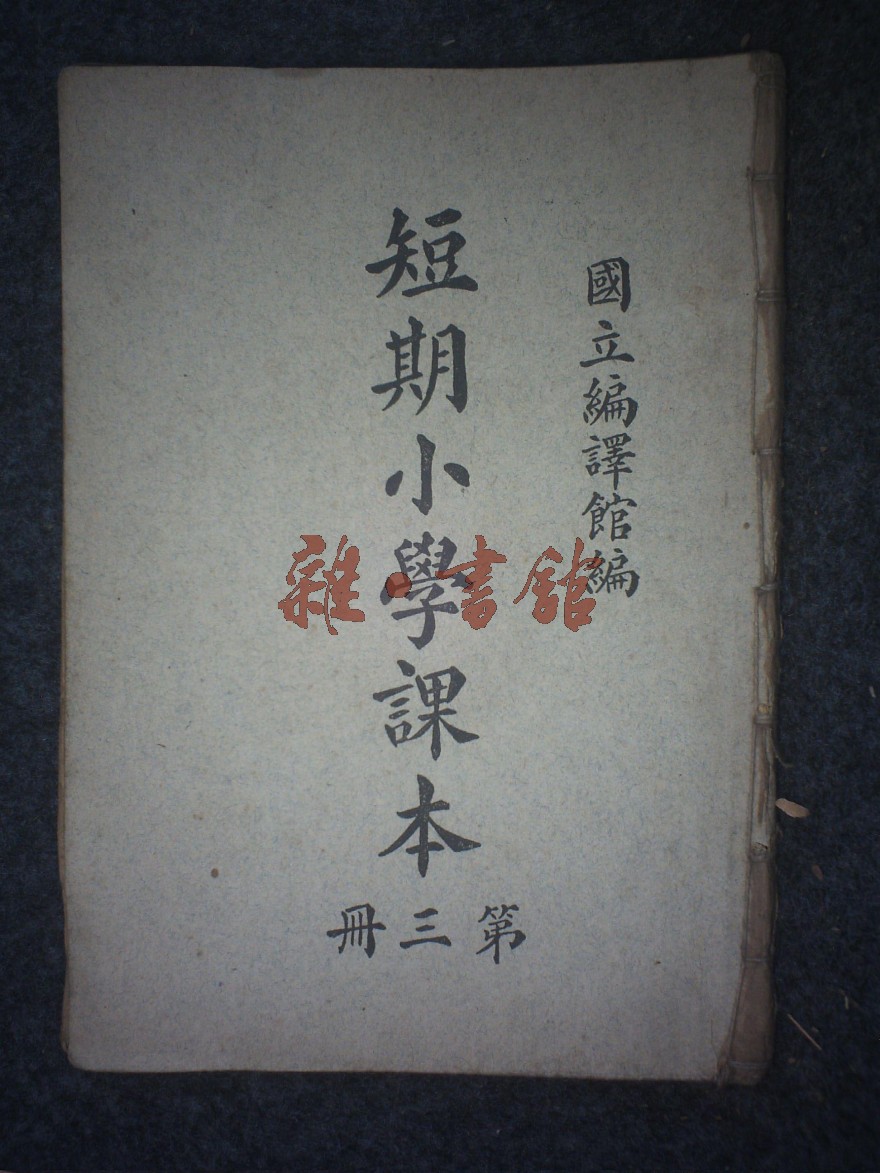 國立編譯館編
短期小學課本
第三冊
雜·書館